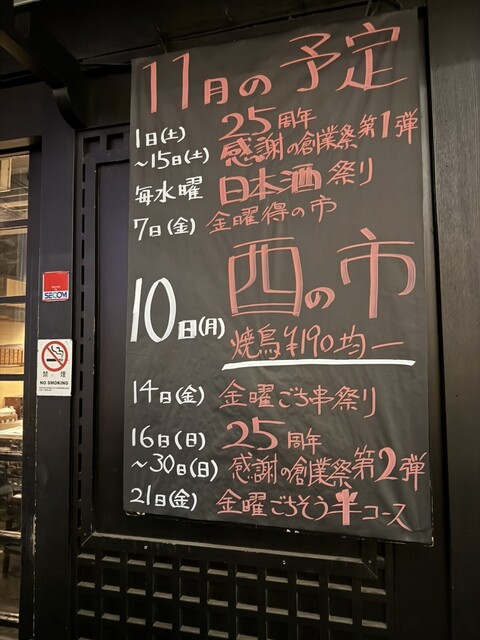 11月の予定
1日(土)
~15日(土)
25周年
感謝の創業祭第1弾
毎水曜 日本酒祭り
7日(金) 金曜得の市
10日(月) 酉の市
焼鳥¥190均一
14日(金) 金曜ごち串祭り
16日(日)
~30日(日)
25周年
感謝の創業祭第2弾
21日(金) 金曜ごちそう半コース
SECOM
禁煙
NO SMOKING